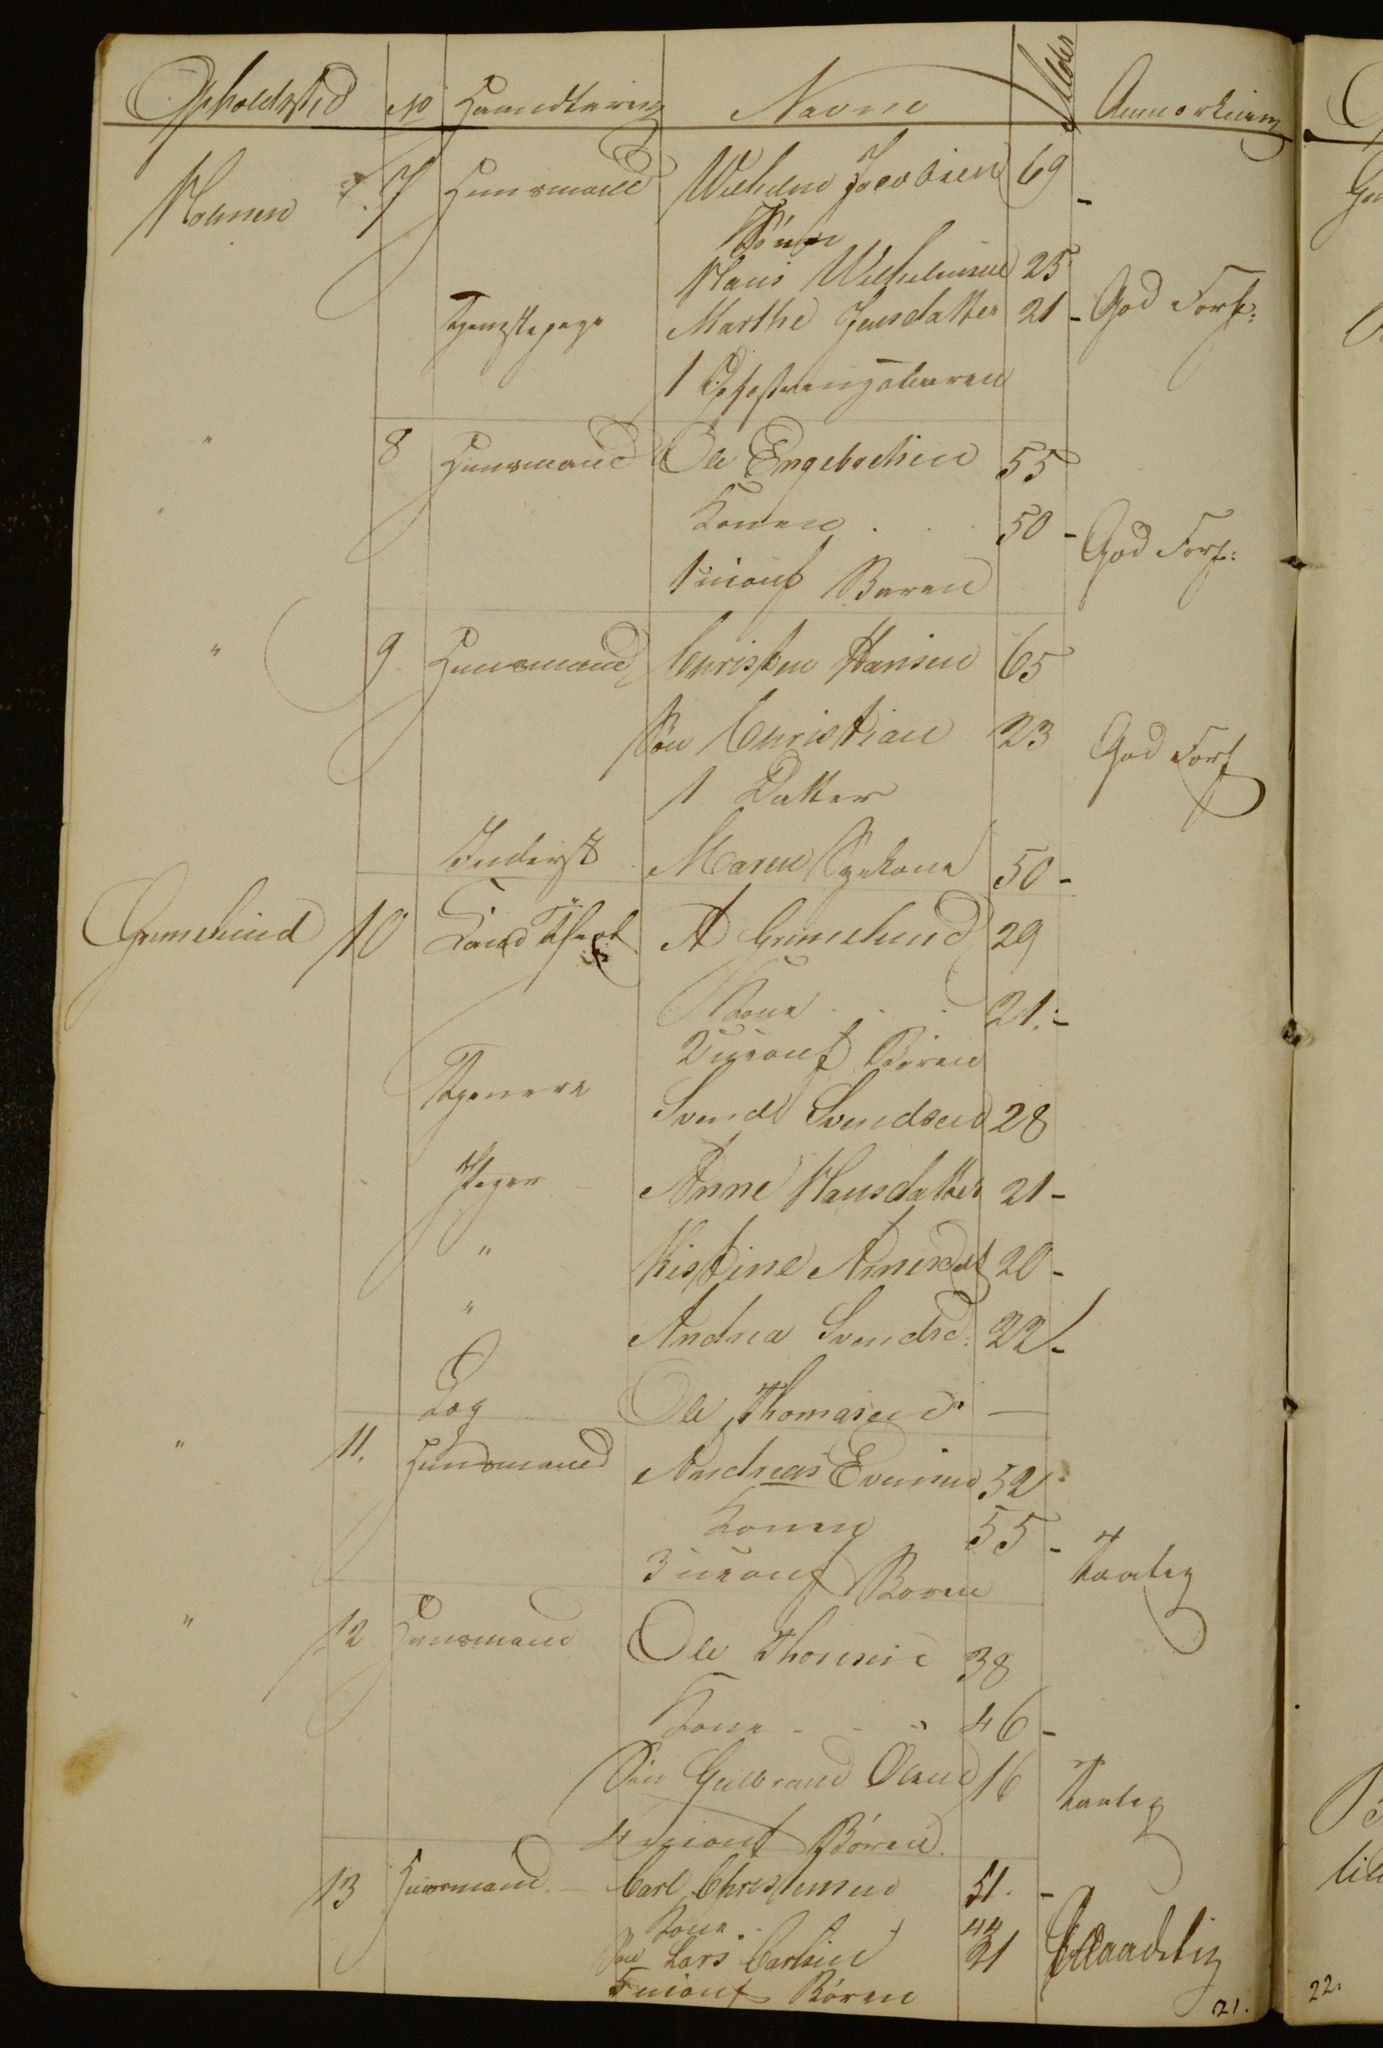 Opholdsted No Haandtering Navne Alder Anmerkning
Moenen 7. 7 Huusmand Wilhelm Jacobsen 69 -
Sønn
Hans Wilhelmsen 25
Tjenstepige Marthe Jensdatter 21 - God Forf:
1 Opfostringsbaren
" 8 Huusmand Ole Engebretsen 55
Konen . . . 50 - God Forf:
1 uconf Baren
" 9 Huusmand Christen Hansen 65
Søn Christian 23 God Forf
1 Datter
Inderst Maren Sykone 50 -
Grimelund 10 A Grimelund 29
Kone . . . 21. -
2 uconf Børen
Tjenere Svend Svendsen 28
Piger - Anne Hansdatter 21 -
" Kistine Arnesdt 20 -
" Andrea Svendsd: 22 -
Log Ole Thomasen —
" 11. Huusmand Andreas Evensen 52
Konen 55 - Taalig
3 uconf Boren
" 12 Huusmand Ole 38
Kone - - " 46 -
Søn Gulbrand Olsen 16 Taalig
4 uconf Børen.
13 Huusmand. - Carl Christensen 51. -
Kone . 44
Søn Lars Carlsen 21 Maadelig
5 uconf Børen
21.
22.